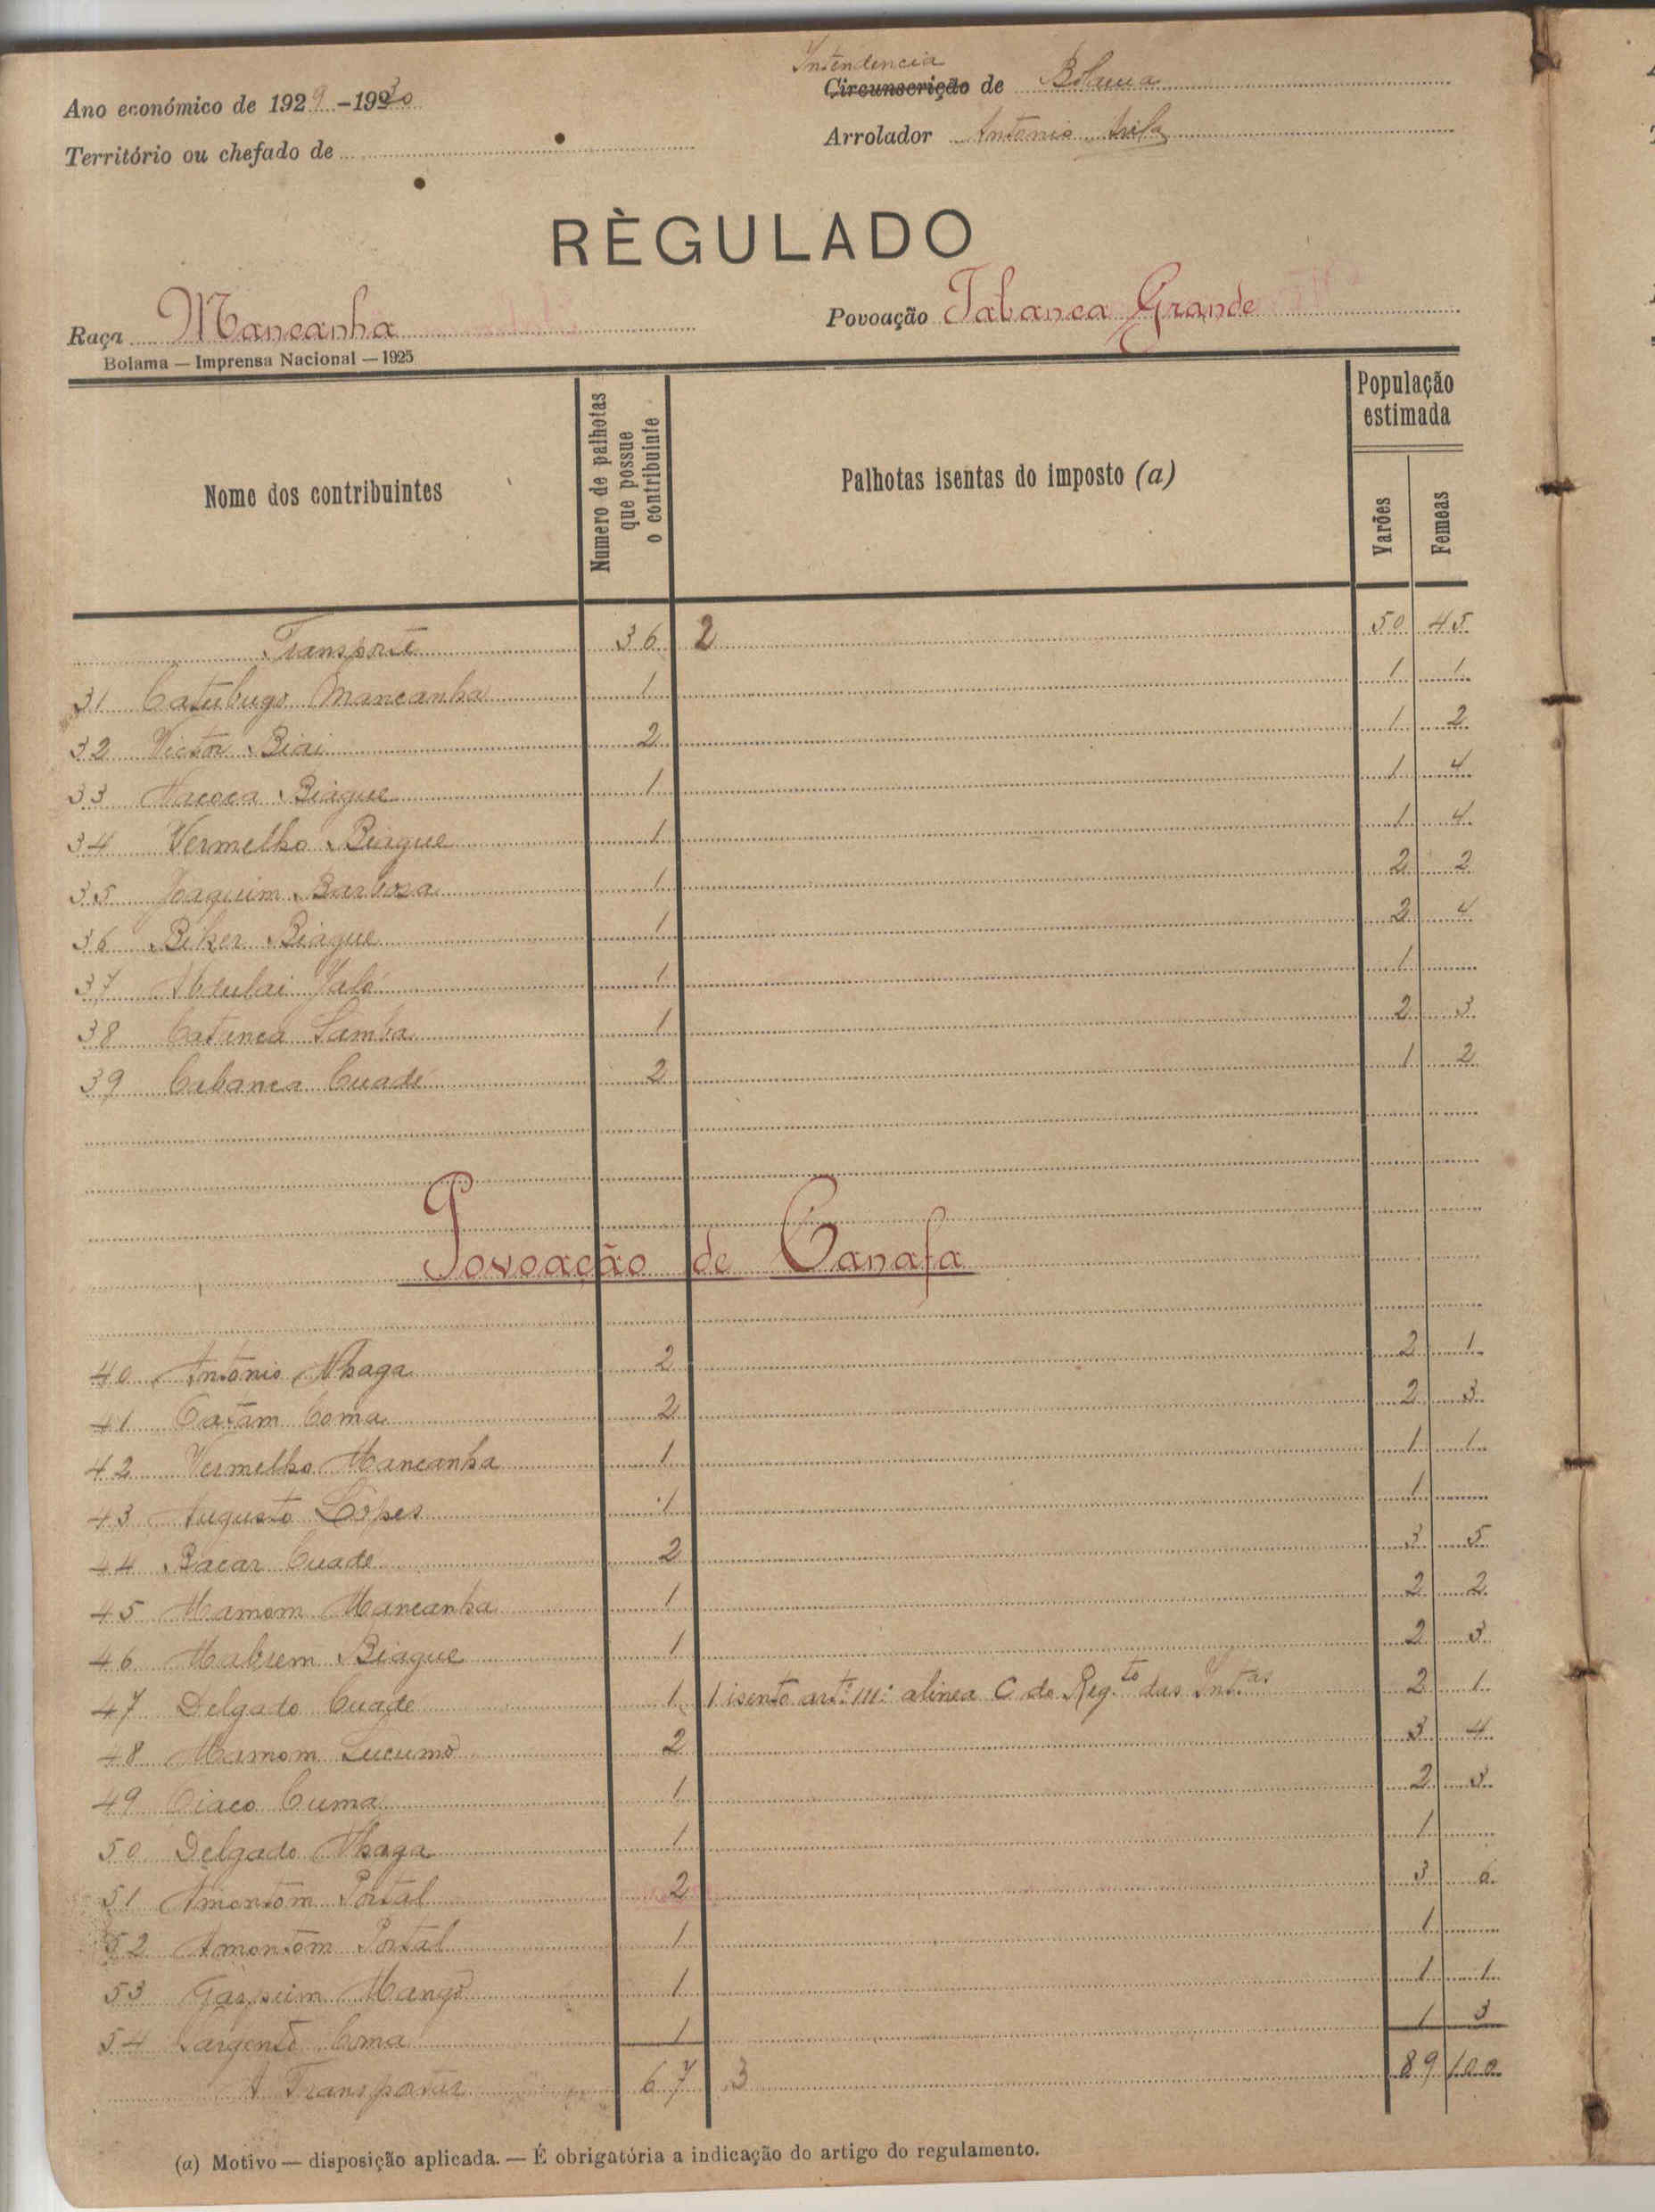 Intendencia
Ano económico de 1929-1930
Circunscrição de Bolama
Território ou chefado de
Arrolador António
RÈGULADO
Raça Mancanha
Povoação Tabanca Grande
Bolama — Imprensa Nacional — 1925
Nome dos contribuintes
Numero de palhotas que possue o contribuinte
Palhotas isentas do imposto (a)
População estimada
Varões
Femeas
Transporte 36 2 50 45
31 Catubugo Mancanha 1 1 1
32 Victor Biai 2 1 2
33 Nacoca Biague 1 1 4
34 Vermelho Biague 1 1 4
35 Joaquim Barbosa 1 2 2
36 Biker Biague 1 2 4
37 Abdulai Jaló 1 1
38 Catanca Samba 1 2 3
39 Cabanca Cuade 2 1 2
Povoação de Canafa
40 António Nhaga 2 2 1
41 Catam Coma 2 2 3
42 Vermelho Mancanha 1 1 1
43 Augusto Lopes 1 1
44 Bacar Cuade 2 3 5
45 Mamom Mancanha 1 2 2
46 Biague 1 2 3
47 Delgado Cuade 1 1 isento artº 111º alinea C do Reg.to das Int.as 2 1
48 Mamom Lucumó 2 3 4
49 Ciaco Cuma 1 2 3
50 Delgado Nhaga 1 1
51 Amontom Portal 2 3
52 Amontom Portal 1 1
53 Mango 1 1 1
54 Sargento Coma 1 1 3
A Transportar 67 3 89 100
(a) Motivo — disposição aplicada. — É obrigatória a indicação do artigo do regulamento.